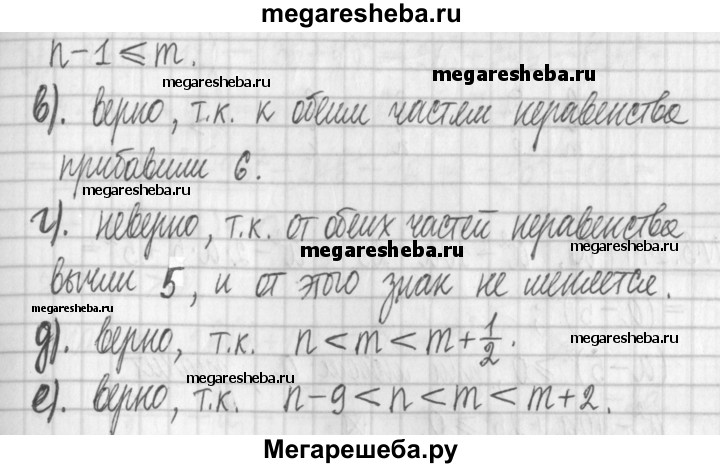 megaresheba.ru
n-1⩽m.
megaresheba.ru
megaresheba.ru
в). верно, т.к. к обеим частям неравенства
прибавили 6.
megaresheba.ru
г). неверно, т.к. от обеих частей неравенства
megaresheba.ru
megaresheba.ru
вычли 5, и от этого знак не меняется.
megaresheba.ru
д). верно, т.к. n<m<m+1/2.
megaresheba.ru
megaresheba.ru
е). верно, т.к. n-9<n<m<m+2.
Мегарешеба.ру